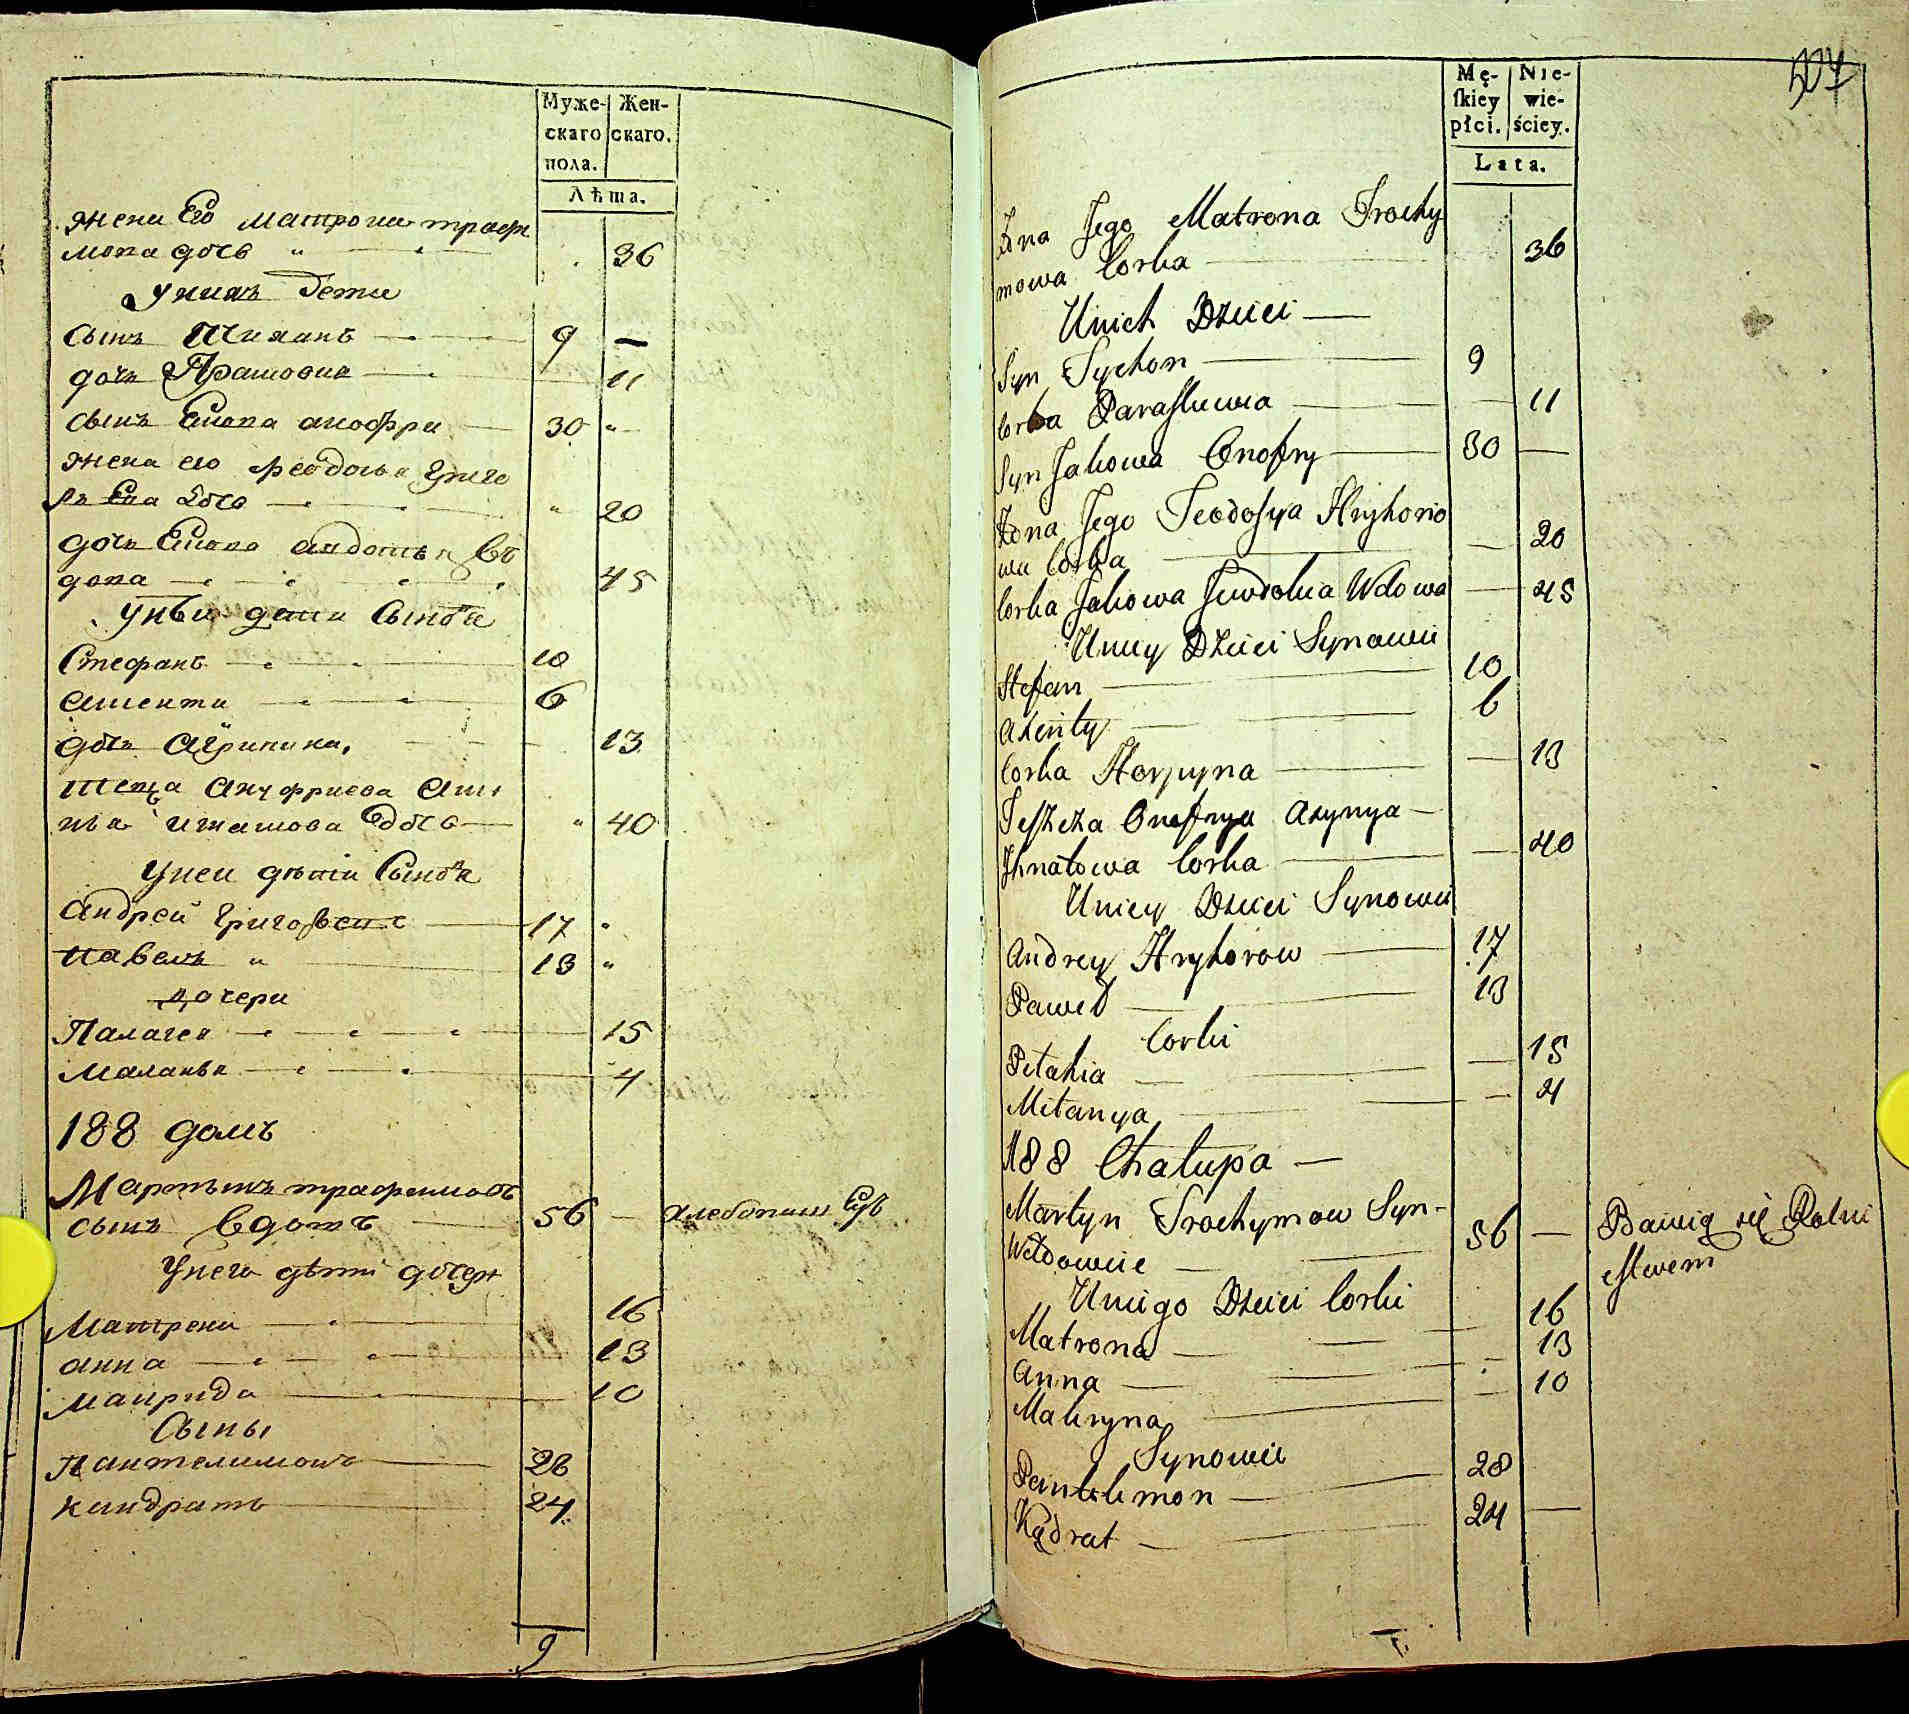 Муже-
скаго
пола.
Жен-
скаго.
Лѣта.
жена Его матрона траφи
мова дочь 36
Унихъ Дети
Сынъ Тиханъ 9 —
дочь Прасковия 11
Сынъ Якова анофри 30
жена его феодосья Григо
рьева дочь 20
дочь Якова авдотья в
дова 45
унеи дети Сынове
Стефанъ 10
аксенти 6
дочь Агрипина 13
теща Ануфриева
игнатова дочь 40
Унеи дѣти Сынове
Андрей Григорьевъ 17
Павелъ 13
дочери
Палагея 15
Маланья 4
188 домъ
Мартынъ трафимовъ
Сынъ вдовъ 56 —
Унего дѣти дочери
Матрена 16
анна 13
10
Сыны
Пантелимонъ 28
кандратъ 24
9
507
Mę-
skiey
płci.
Nie-
wie-
ściey.
Lata.
Żona Jego Matrona Trochy
mowa Corka 36
Unich Dzieci
Syn Tychon 9
Corka Paraskiewia 11
Syn Jakowa Onofry 30
Żona Jego Teodosya Hryhorio
wa Corka 20
Corka Jakowa Jewdokia Wdowa 45
Uniey Dzieci Synowie
Stefan 10
Axenty 6
Corka Horpyna 13
Teszcza Onofrya Axynya
Ihnatowa Corka 40
Uniey Dzieci Synowie
Andrey Hryhorow 17
Paweł 13
Corki
Pełahia 15
Mełanya 4
188 Chałupa
Martyn Trochymow Syn-
Wdowiec 56 — Bawią się Rolni
ctwem
Uniego Dzieci Corki
Matrona 16
Anna 13
Makryna 10
Synowie
Pantelimon 28
Kądrat 24